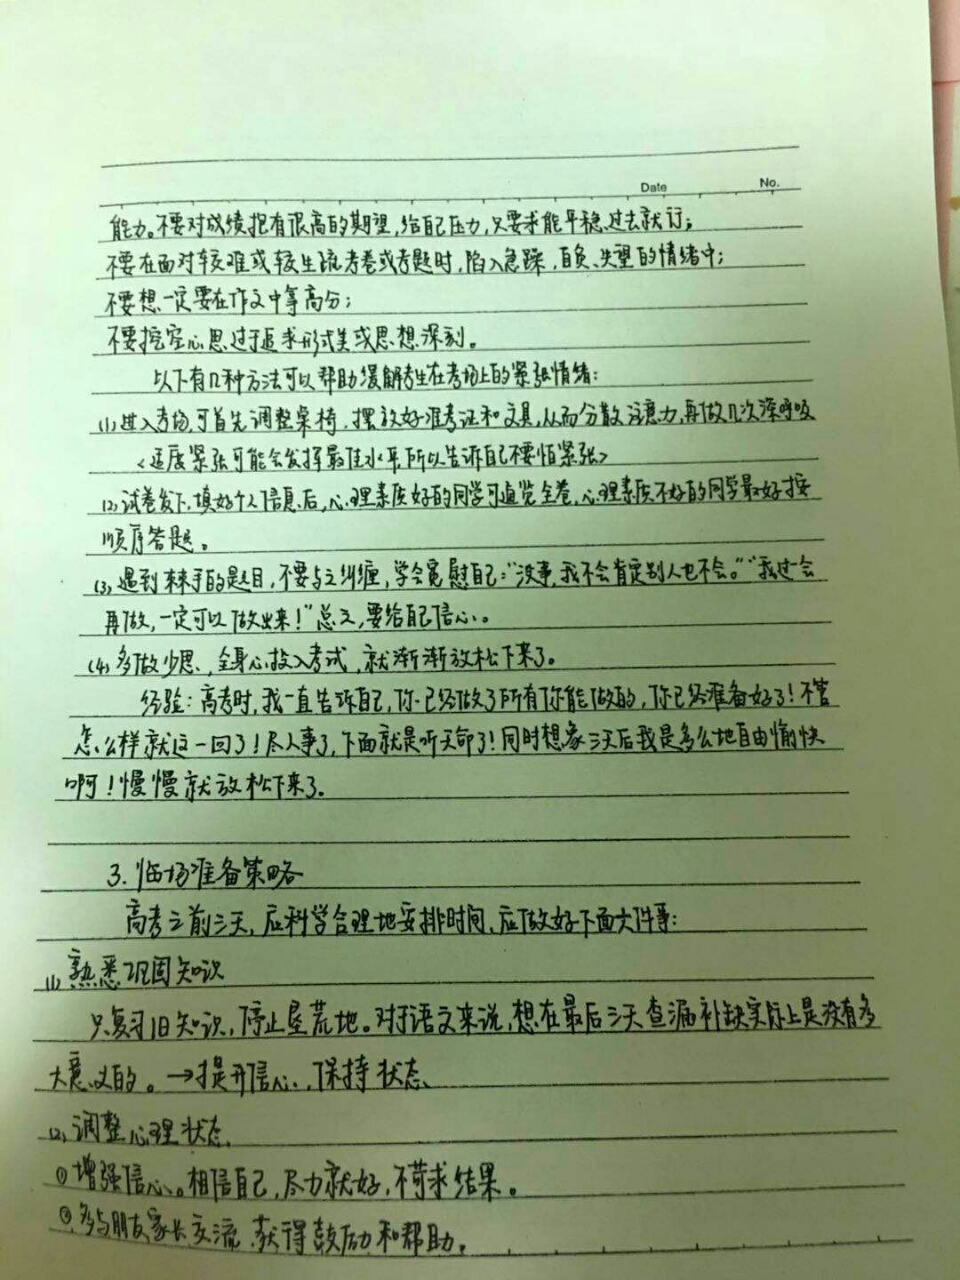 Date No.
能力。不要对成绩抱有很高的期望,给自己压力,只要求能平稳过去就行;
不要在面对较难或较生疏考卷或考题时,陷入急躁,自负、失望的情绪中;
不要想一定要在作文中等高分;
不要挖空心思过于追求形式美或思想深刻。
以下有几种方法可以帮助缓解考生在考场上的紧张情绪:
(1)进入考场,可首先调整桌椅,摆放好准考证和文具,从而分散注意力,再做几次深呼吸
<适度紧张可能会发挥最佳水平,所以告诉自己不要怕紧张>
(2)试卷发下,填好个人信息后,心理素质好的同学可通览全卷,心理素质不好的同学最好按
顺序答题。
(3)遇到棘手的题目,不要与之纠缠,学会宽慰自己:"没事,我不会肯定别人也不会。""我过一会
再做,一定可以做出来!"总之,要给自己信心。
(4)多做少思、全身心投入考试,就渐渐放松下来了。
经验:高考时,我一直告诉自己,你已经做了所有你能做的,你已经准备好了!不管
怎么样就这一回了!尽人事了,下面就是听天命了!同时想象三天后我是多么地自由愉快
啊!慢慢就放松下来了.
3.临场准备策略
高考之前三天,应科学合理地安排时间,应做好下面六件事:
(1)熟悉巩固知识
只复习旧知识,停止垦荒地。对于语文来说,想在最后三天查漏补缺实际上是没有多
大意义的。→提升信心,保持状态
(2)调整心理状态
①增强信心。相信自己,尽力就好,不苛求结果。
②多与朋友家长交流,获得鼓励和帮助。